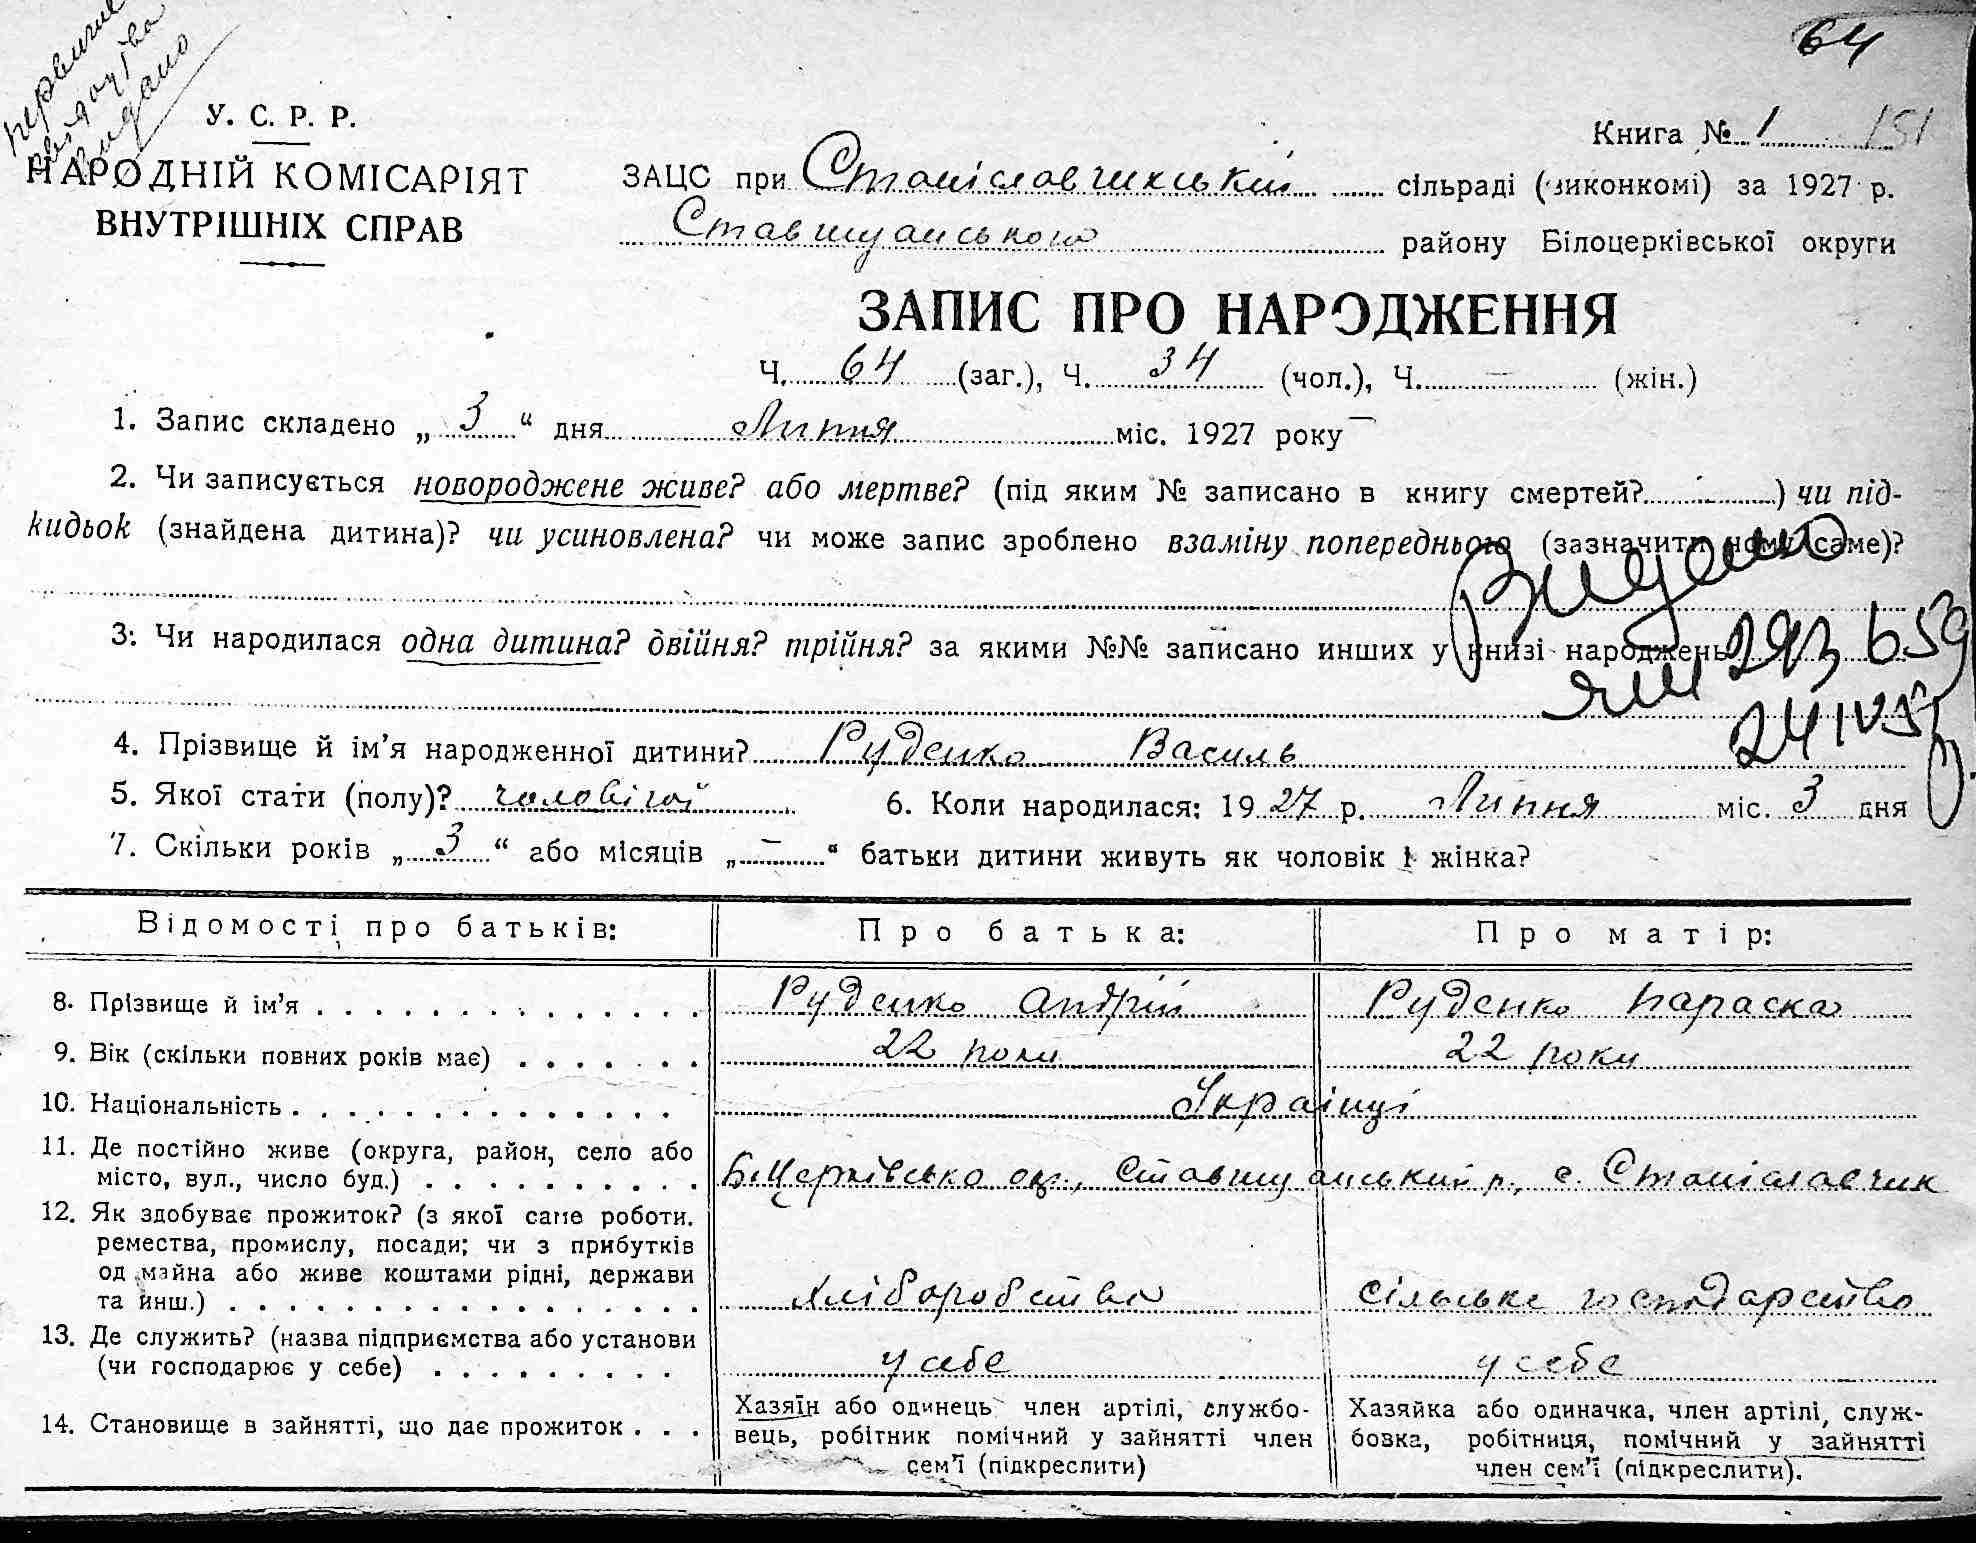 первичне
свідоцтво
видано
64
У. С. Р. Р.
НАРОДНІЙ КОМІСАРІЯТ
ВНУТРІШНІХ СПРАВ
Книга № 1 151
ЗАЦС при Станіславчикській сільраді (виконкомі) за 1927 р.
Ставищанського району Білоцерківської округи
ЗАПИС ПРО НАРОДЖЕННЯ
Ч. 64 (заг.), Ч. 34 (чол.), Ч. — (жін.)
1. Запис складено „ 3 “ дня Липня міс. 1927 року
2. Чи записується новороджене живе? або мертве? (під яким № записано в книгу смертей? - ) чи під-
кидьок (знайдена дитина)? чи усиновлена? чи може запис зроблено взаміну попереднього (зазначити чому саме)?
Видано
3. Чи народилася одна дитина? двійня? трійня? за якими №№ записано инших у книзі народжень
24 IV
4. Прізвище й ім’я народженної дитини? Руденко Василь
5. Якої стати (полу)? чоловічої 6. Коли народилася: 19 27 р. Липня міс. 3 дня
7. Скільки років „ 3 “ або місяців „ — “ батьки дитини живуть як чоловік і жінка?
Відомості про батьків: Про батька: Про матір:
8. Прізвище й ім’я . . . . . . . . . . . . . . Руденко Андрій Руденко Параска
9. Вік (скільки повних років має) . . . . . . 22 роки 22 роки
10. Національність . . . . . . . . . . . . . . Українці
11. Де постійно живе (округа, район, село або
місто, вул., число буд.) . . . . . . . . . . Б.Церківська окр., Ставищанський р., с. Станіславчик
12. Як здобуває прожиток? (з якої саме роботи.
ремества, промислу, посади; чи з прибутків
од майна або живе коштами рідні, держави
та инш.) . . . . . . . . . . . . . . . . . Хліборобство сільське господарство
13. Де служить? (назва підприємства або установи
(чи господарює у себе) . . . . . . . . . у себе у себе
14. Становище в зайнятті, що дає прожиток . . .
Хазяїн або одинець член артілі, службо-
вець, робітник помічний у зайнятті член
сем’ї (підкреслити)
Хазяйка або одиначка, член артілі, служ-
бовка, робітниця, помічний у зайнятті
член сем’ї (підкреслити).